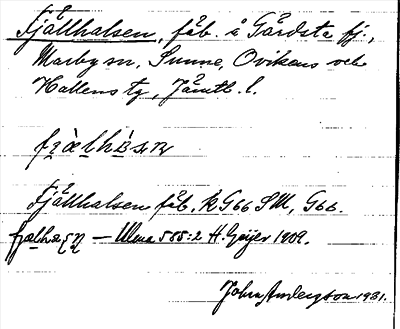 Fjällhalsen, fäb. å Gärdsta fj.,
Marby sn, Sunne, Ovikens och
Hallens tg, Jämtl. l.
Fjällhalsen fäb. k. G66 SM, G66.
— Ulma 585:2 H. Geijer 1909.
John Andersson 1931.